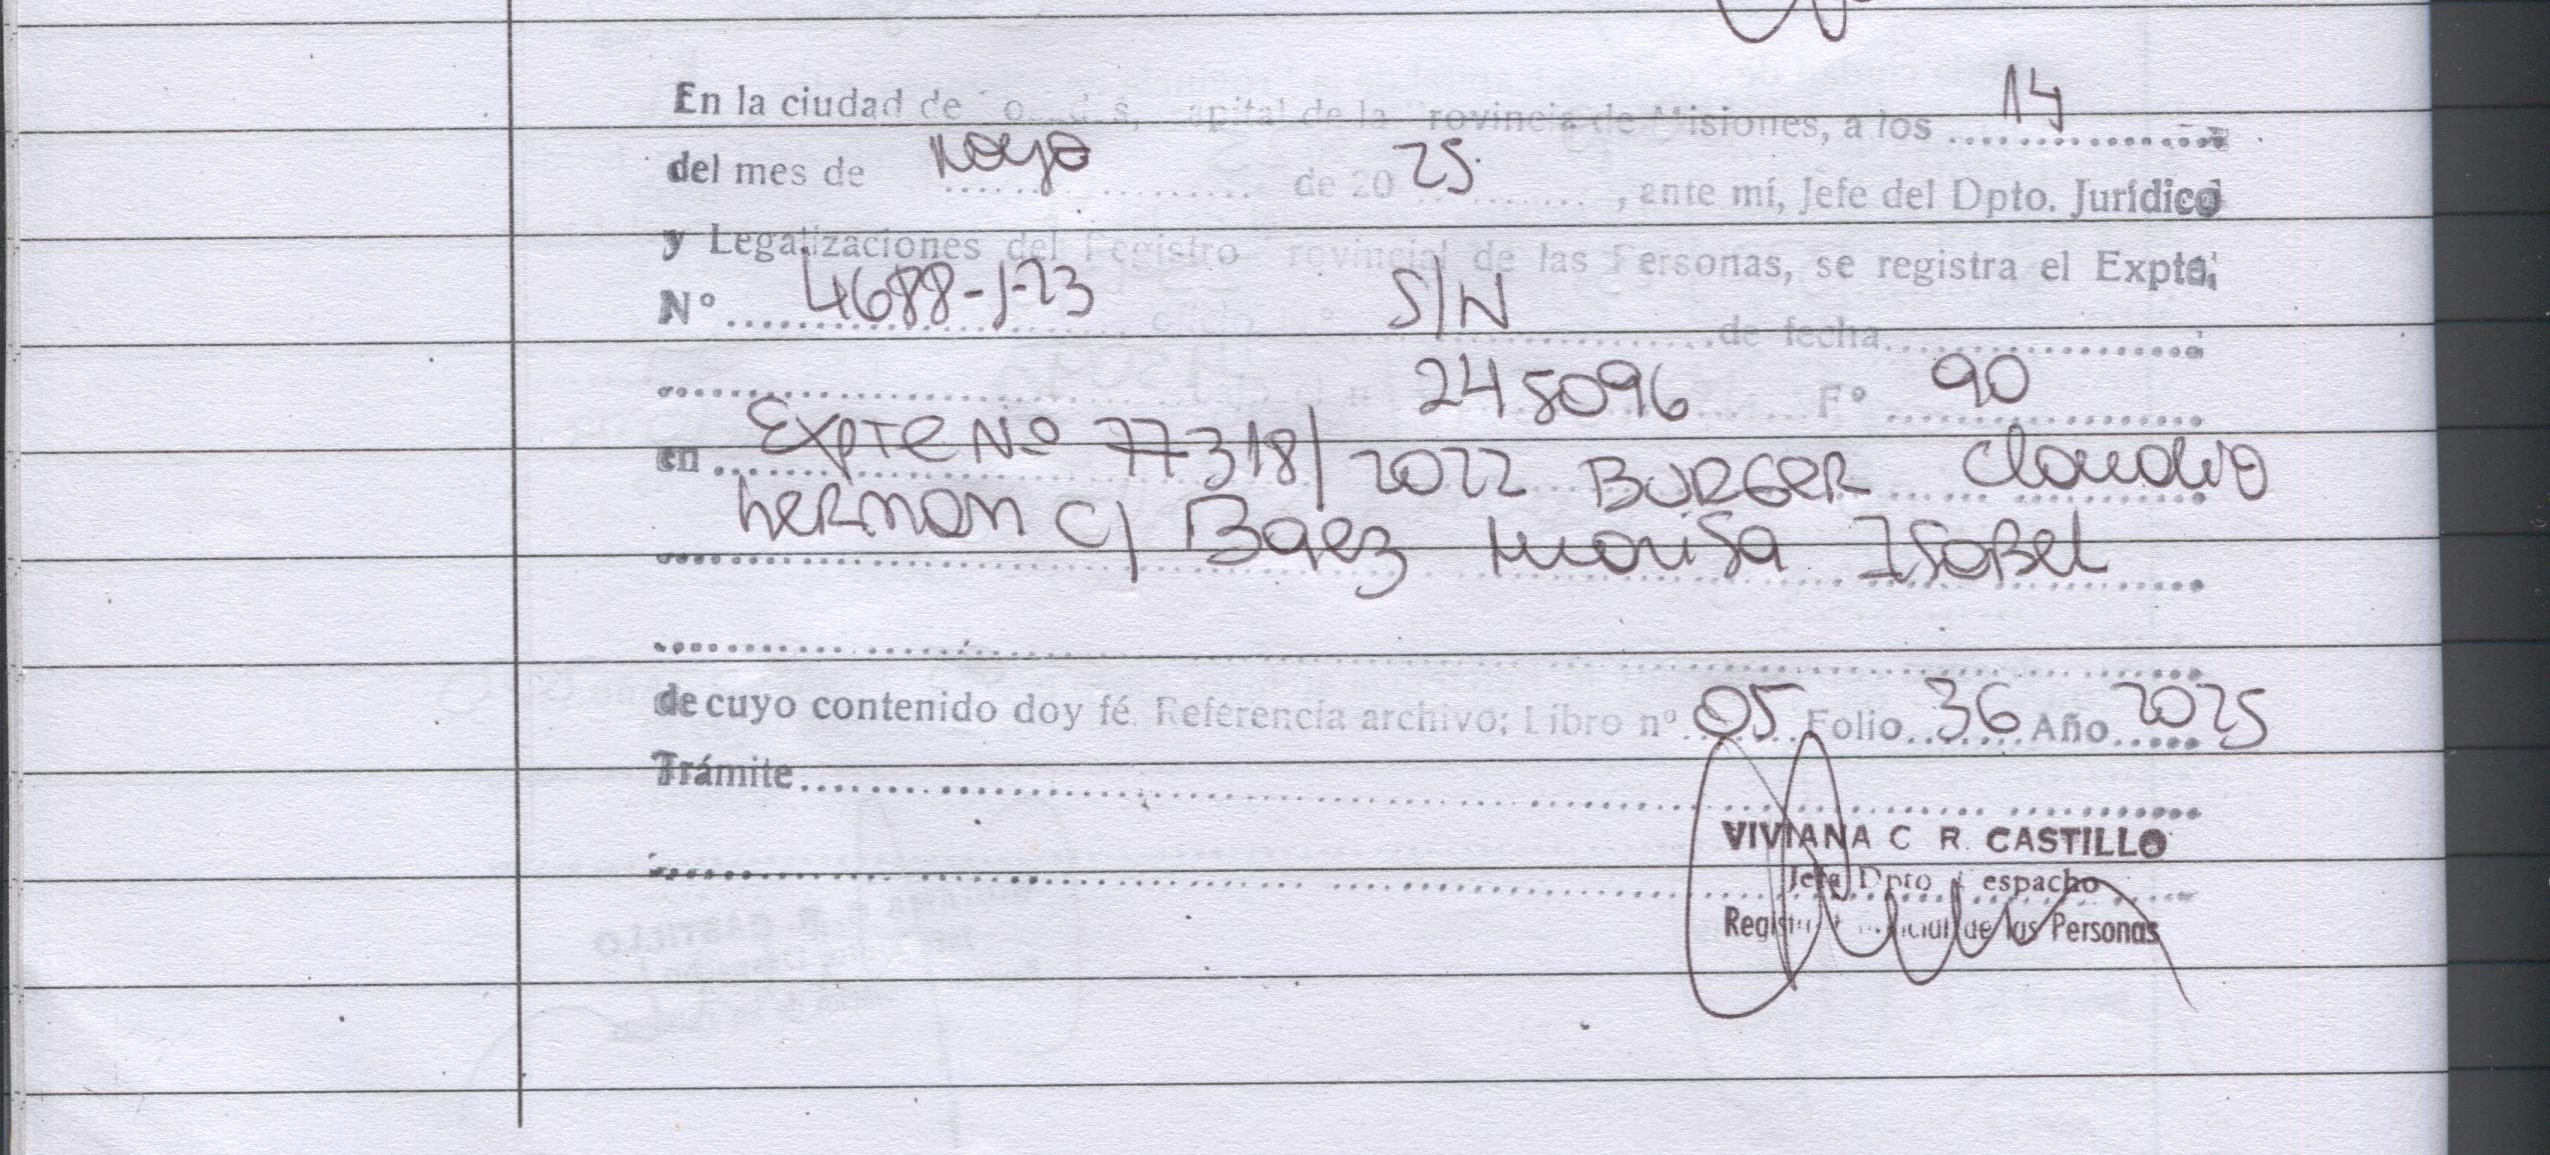 En la ciudad de Capital de la Provincia de Misiones, a los 14
del mes de Mayo de 2025, ante mí, Jefe del Dpto. Jurídico
y Legalizaciones del Registro Provincial de las Personas, se registra el Expte,
Nº 4688-J-23 S/N de fecha
245096 Fº 90
en Expte Nº 77318/2022 BURGER Claudio
Hernan C/ Baez Marisa Isabel
de cuyo contenido doy fé. Referencia archivo: Libro nº 05 Folio 36 Año 2025
Trámite
VIVIANA C R. CASTILLO
Jefa Dpto Despacho
Registro Provincial de las Personas